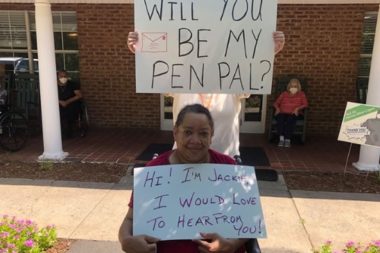 WILL YOU
BE MY
PEN PAL?
HI! I'M JACKIE
I WOULD LOVE
TO HEAR FROM
YOU!
THANK YOU